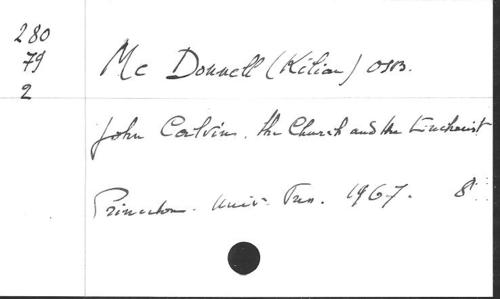 280
79
2
Mc Donnell (Kilian) OSB.
John Calvin, the Church and the Eucharist
Princeton. Univ. Press. 1967. 8°